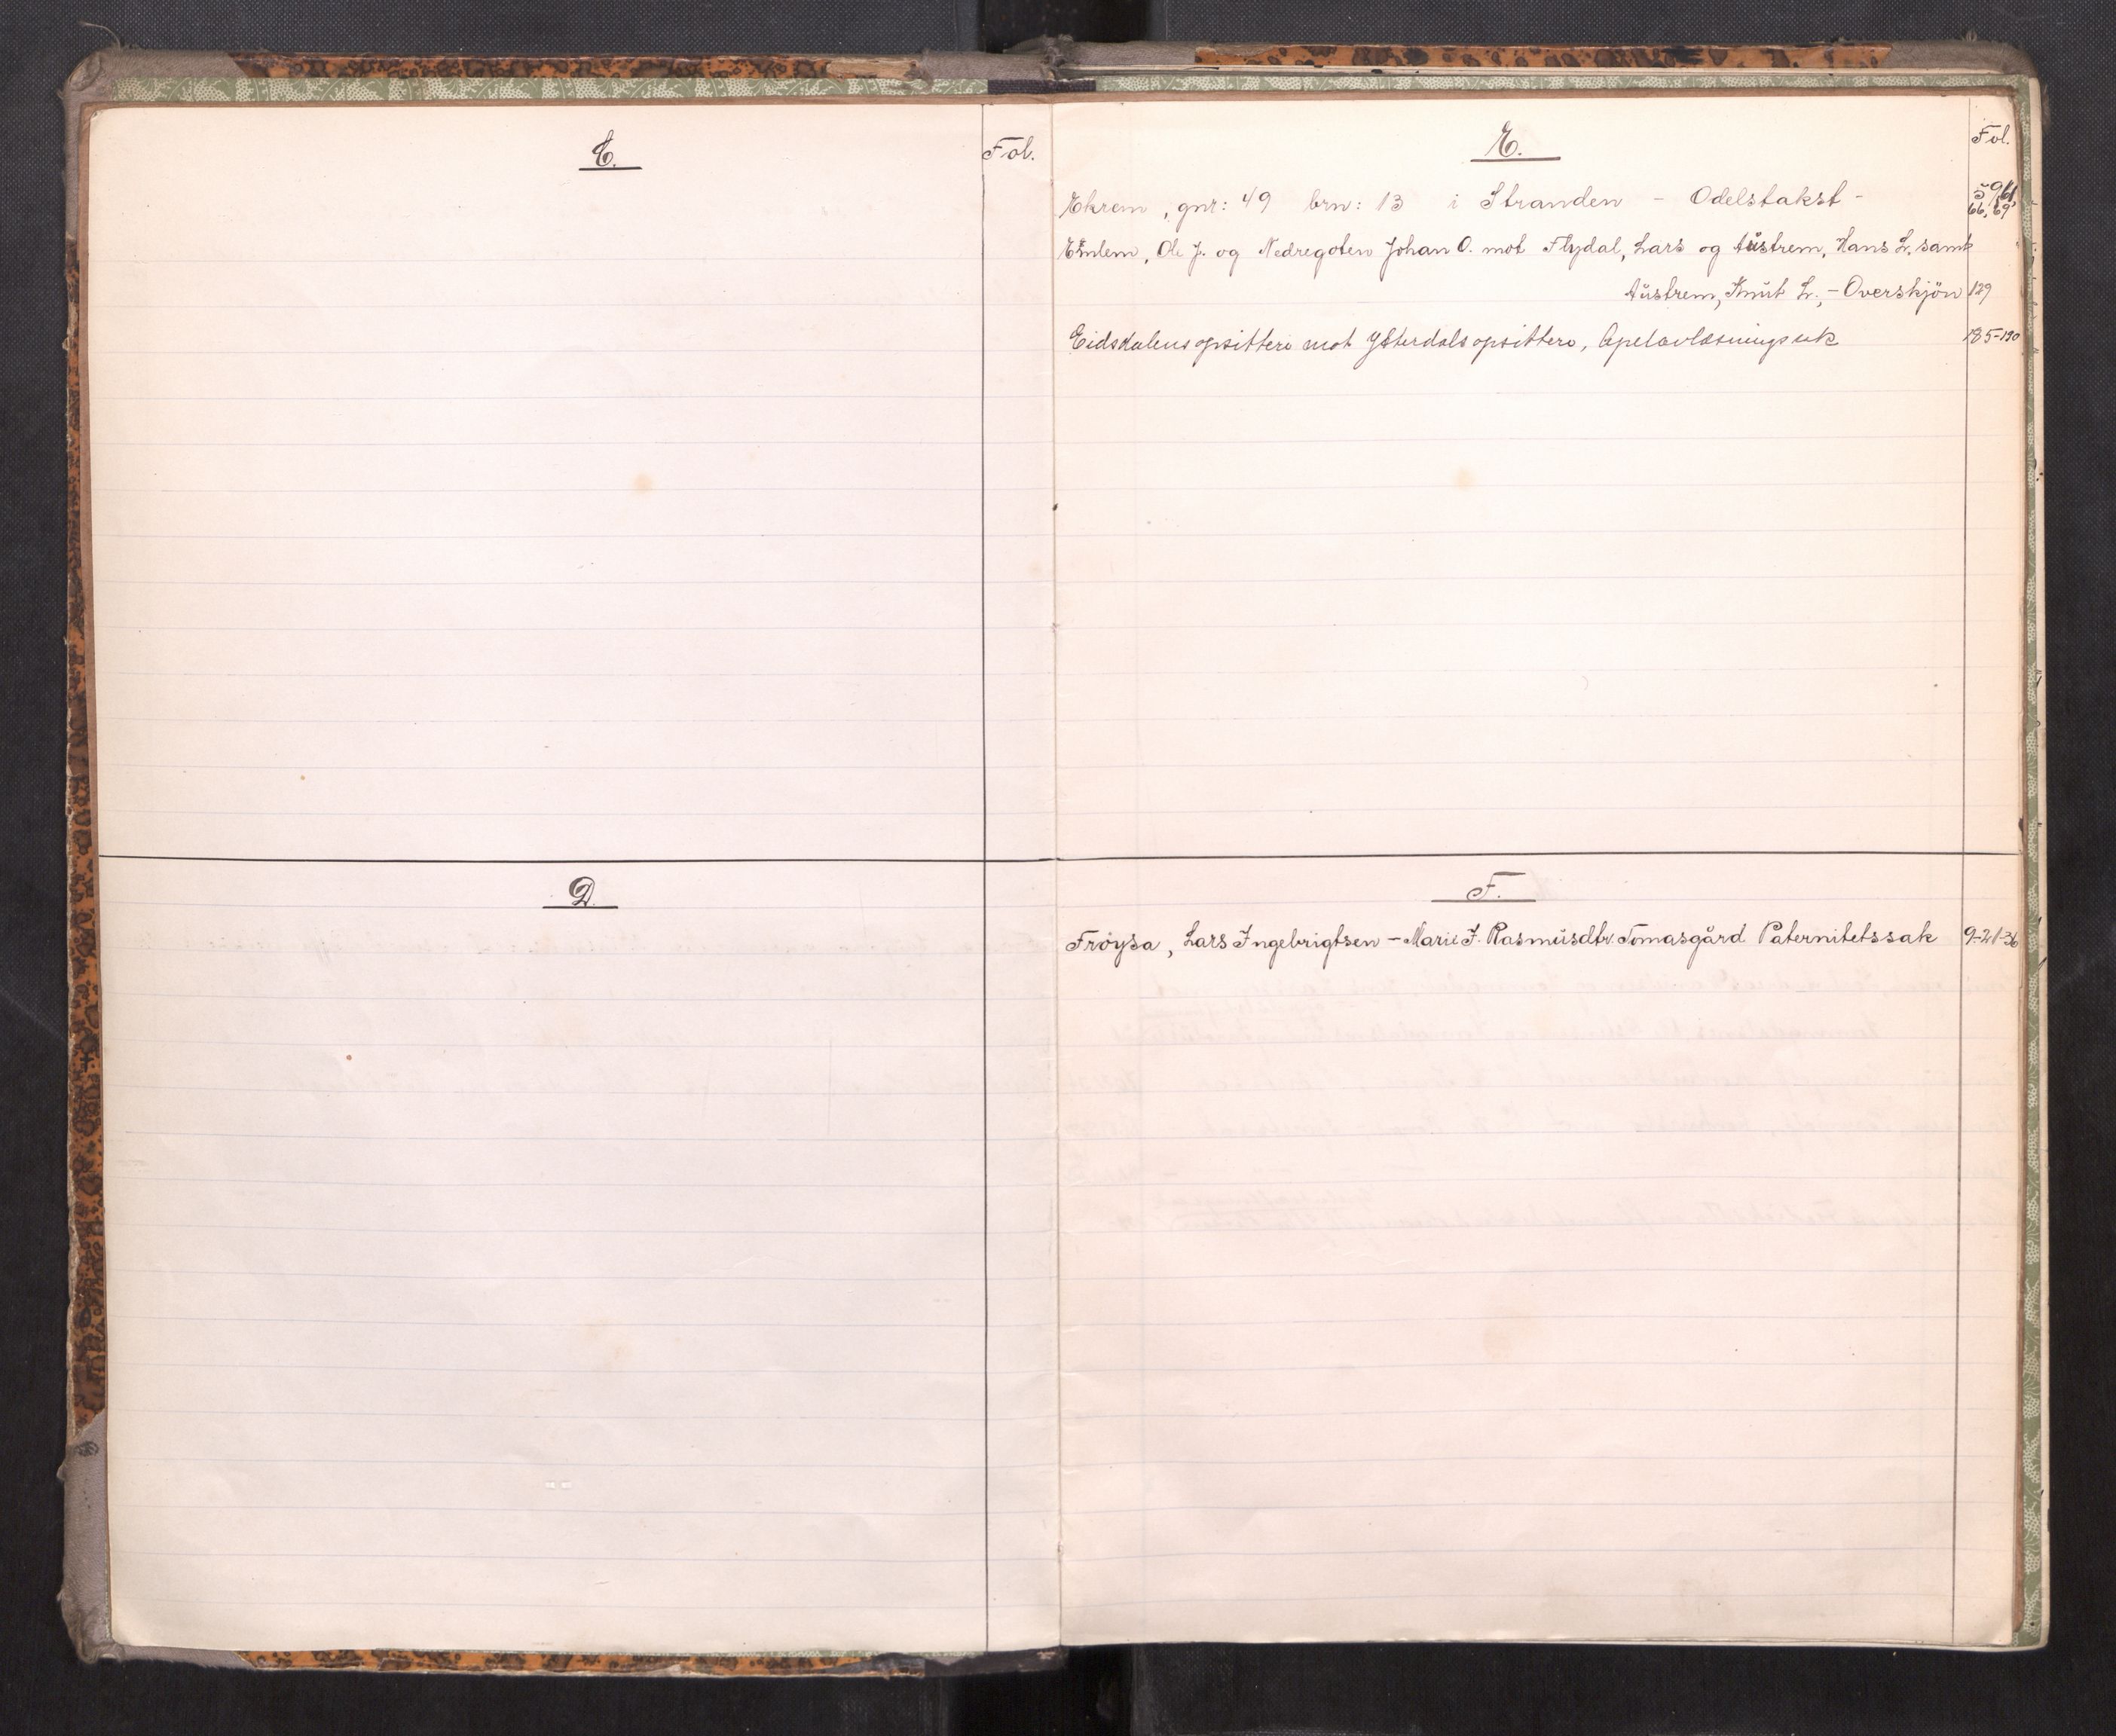 C.
Fol.
D.
E.
Fol.
Ekrem, gnr: 49 brn: 13 i Stranden - Odelstakst - 59, 61,
66, 69
Emlem, Ole J. og Nedregoten Johan O. mot Flydal, Lars og Austrem, Hans L, samt
Austrem, Knut L., - Overskjön 129
Eidsdalens opsittere mot Ytterdals opsittere, 185-190
F.
Frøysa, Lars Ingebrigtsen - Marie J. Rasmusdtr. Tomasgård Paternitetssak 9-21-36